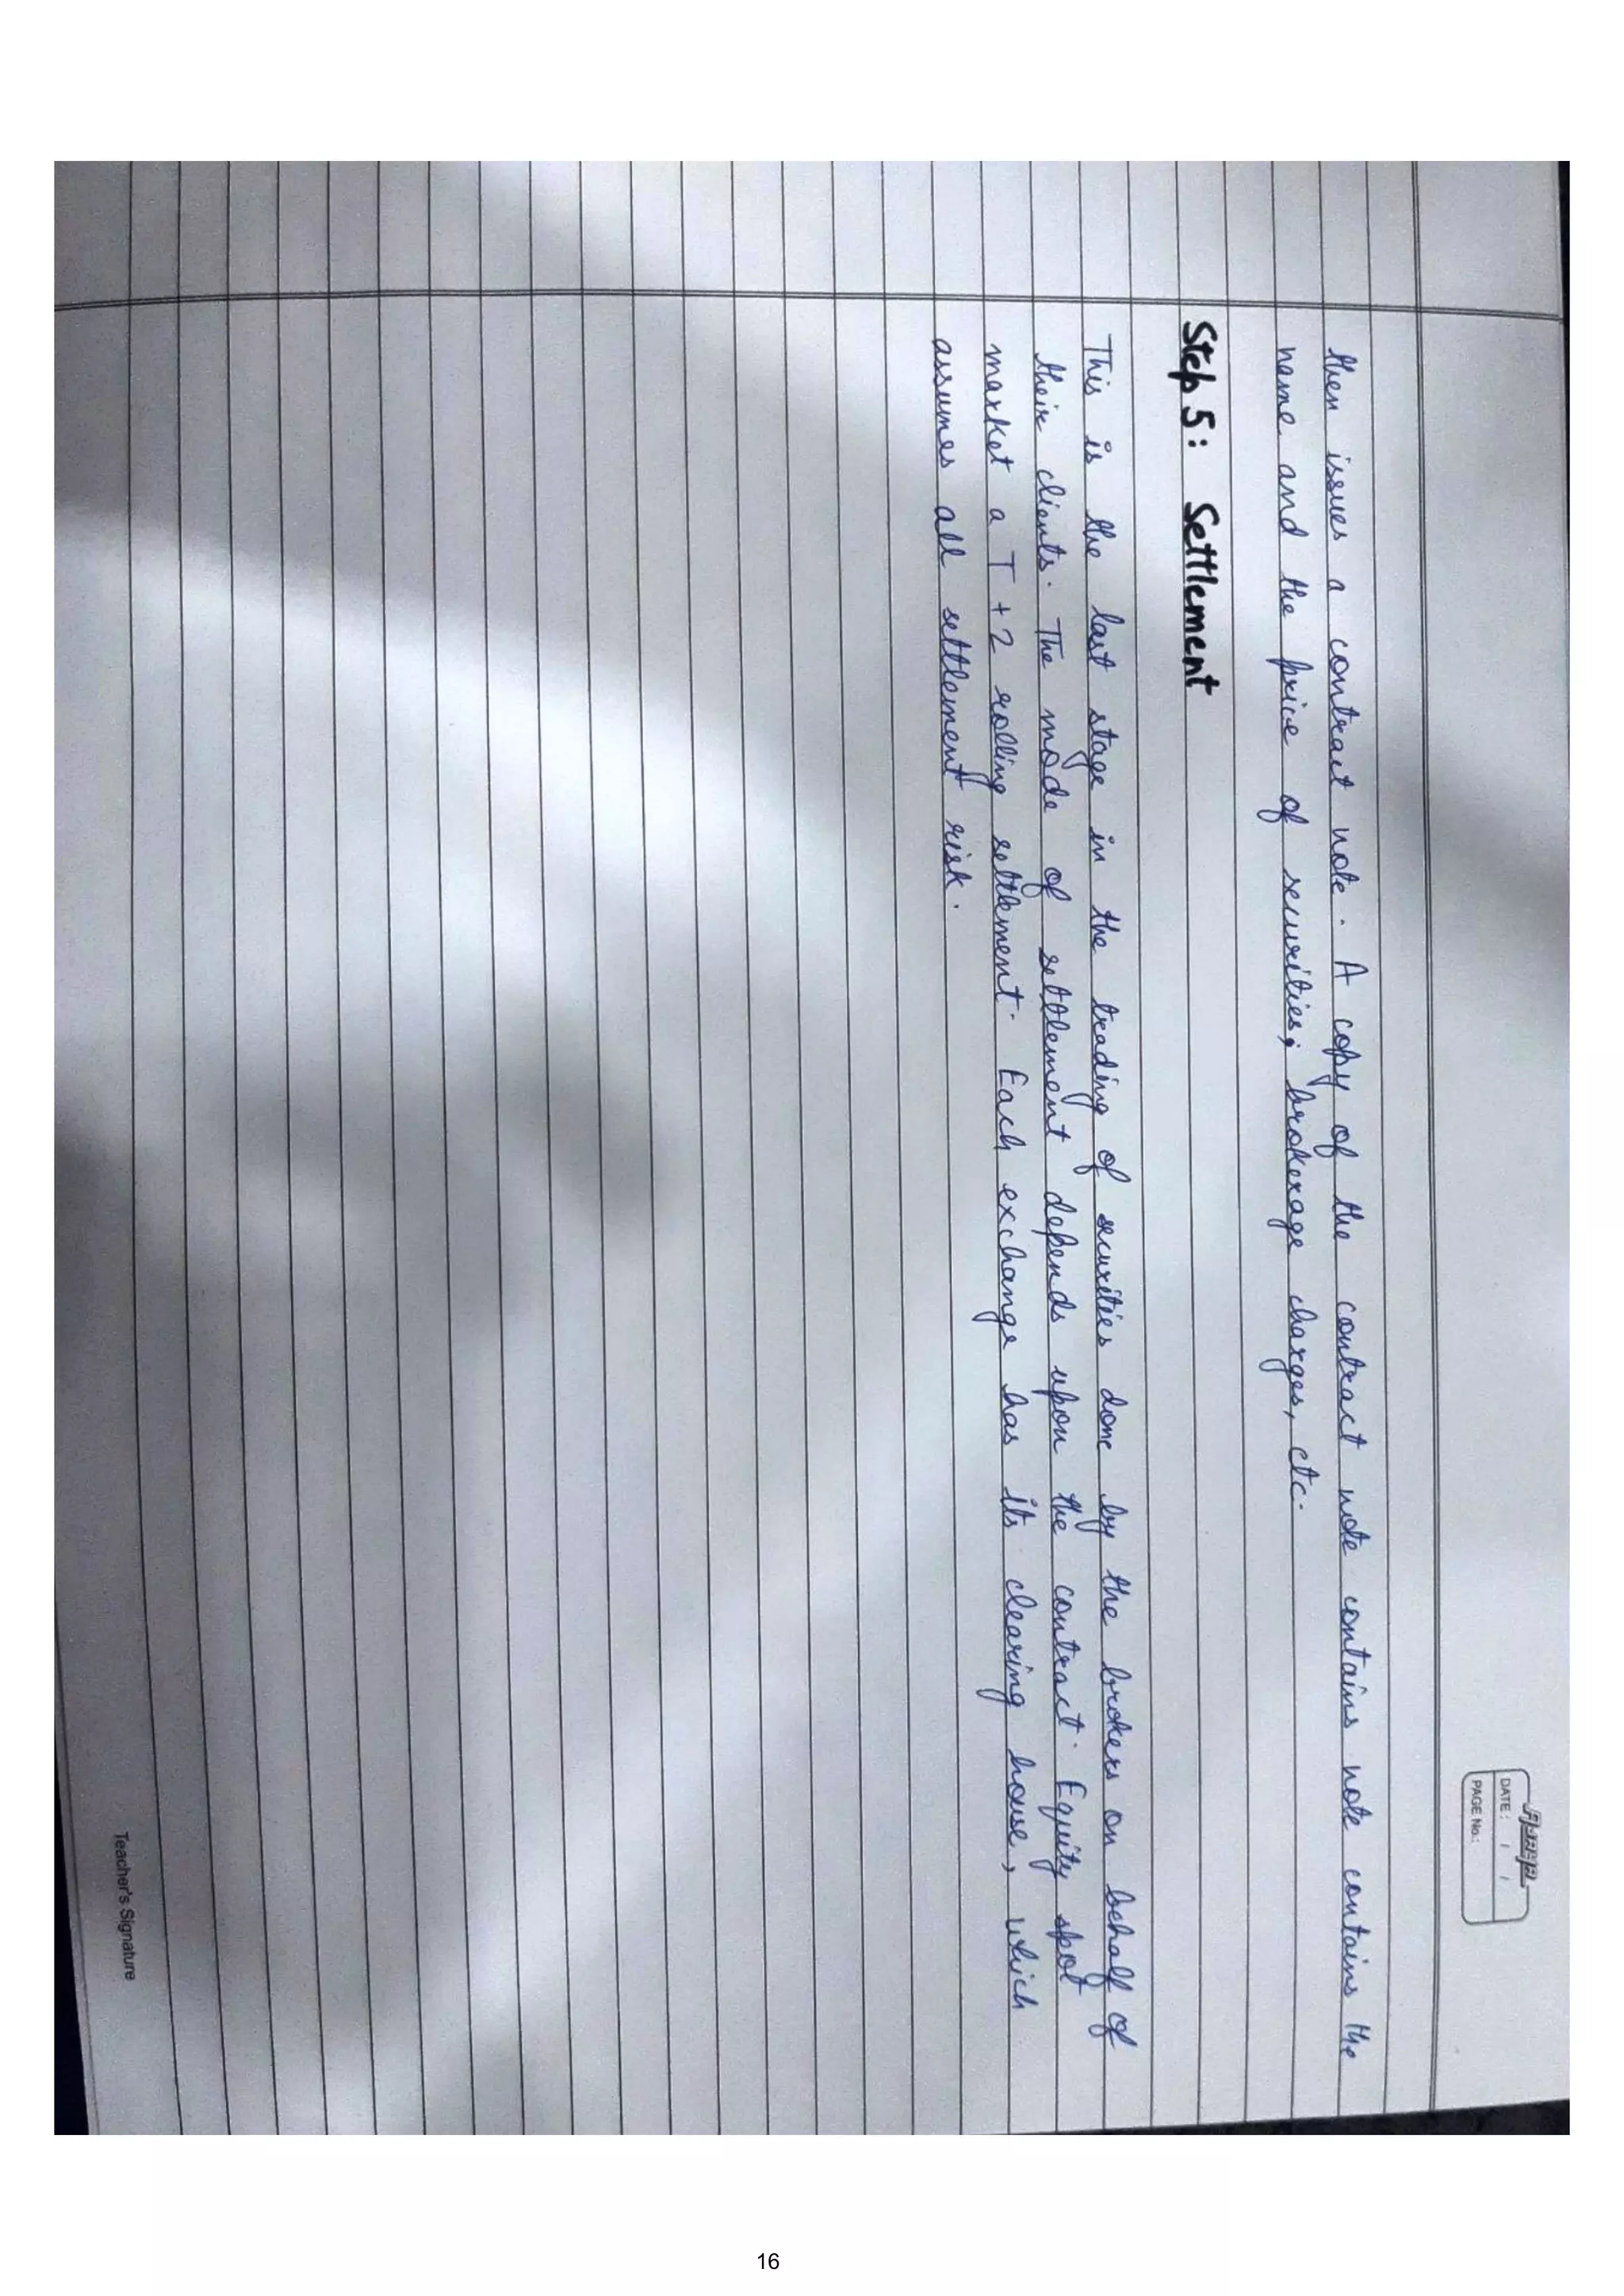 DATE: / /
PAGE No.:
then issues a contract note. A copy of the contract note contains note contains the
name and the price of securities, brokerage charges, etc.
Step 5: Settlement
This is the last stage in the trading of securities done by the brokers on behalf of
their clients. The mode of settlement depends upon the contract. Equity spot
market a T+2 rolling settlement. Each exchange has its clearing house, which
assumes all settlement risk.
Teacher's Signature
16